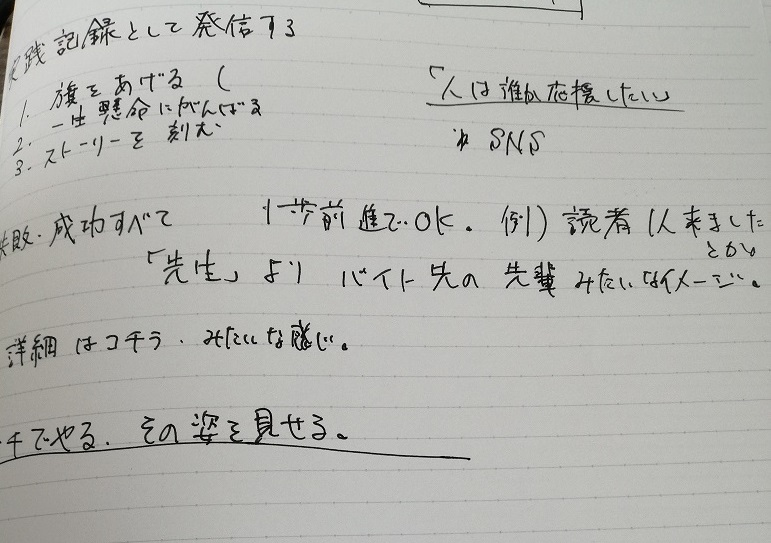 実践記録として発信する
1. 旗をあげる (
2. 一生懸命にがんばる
3. ストーリーを刻む
「人は誰か応援したい」
SNS
失敗・成功すべて
1歩前進でOK。例) 読者1人来ました
とか。
「先生」より バイト先の先輩みたいなイメージ。
詳細はコチラ. みたいな感じ。
チでやる. その姿を見せる。